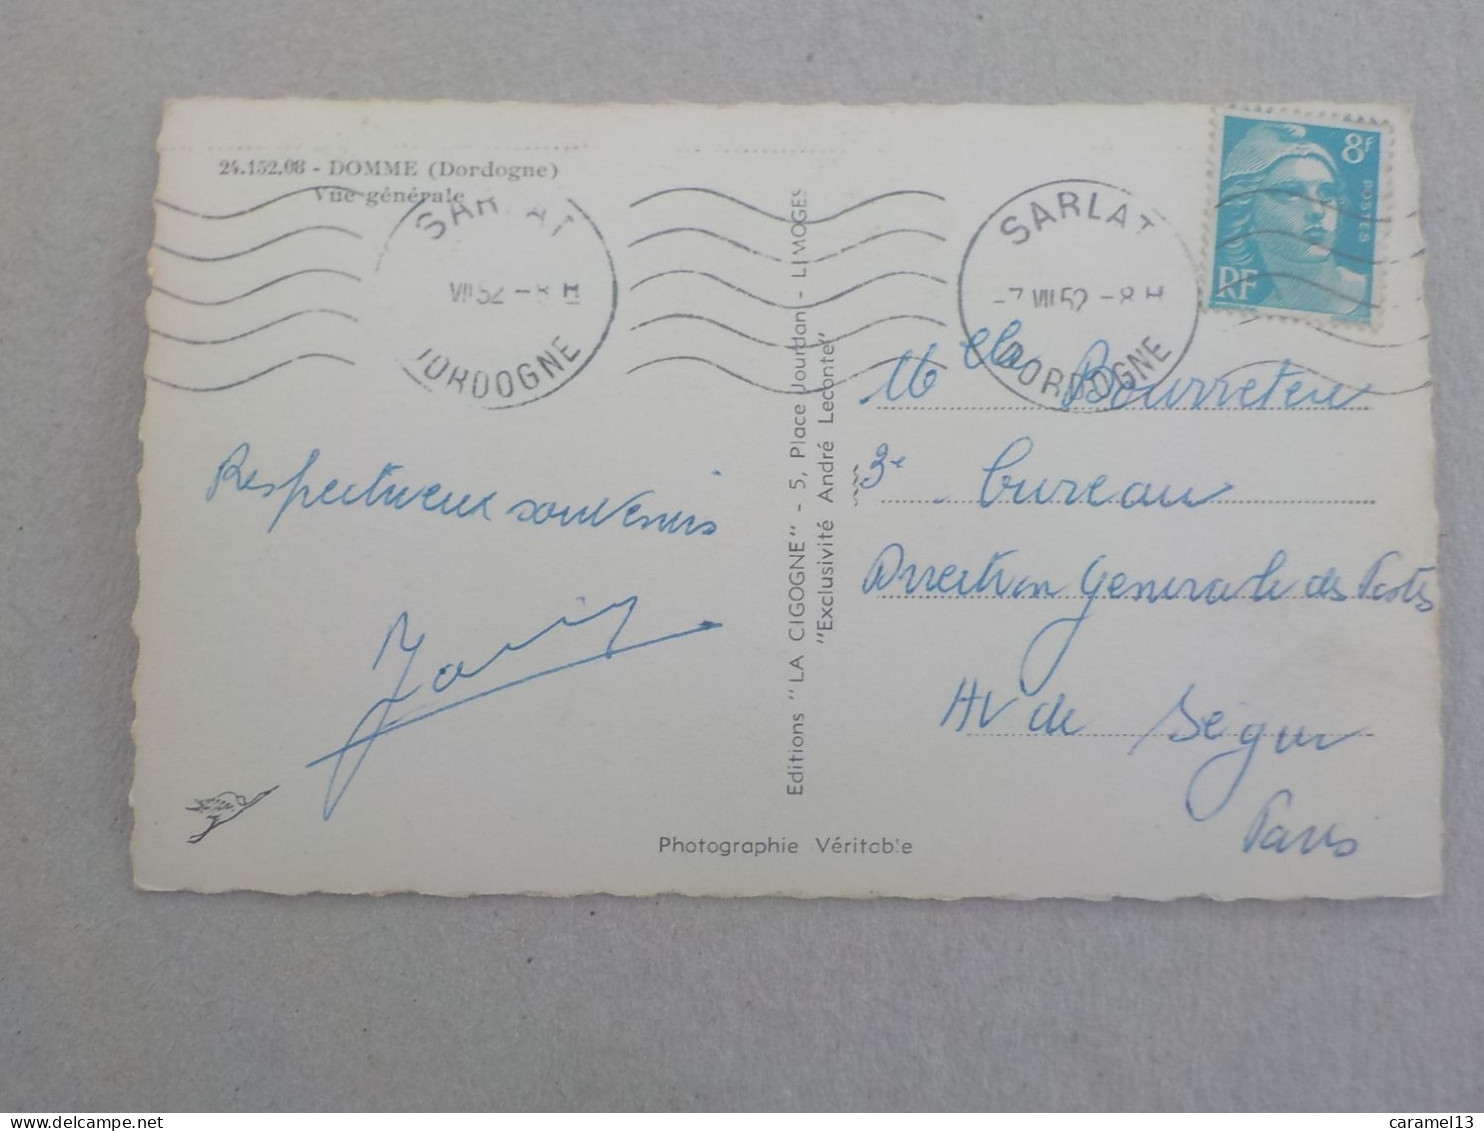 24.152.08 - DOMME (Dordogne)
Vue générale
SARLAT
VII 52 - 8 H
DORDOGNE
SARLAT
-7 VII 52 - 8 H
DORDOGNE
8F
POSTES
RF
Respectueux souvenirs
Editions "LA CIGOGNE" - 5, Place Jourdan - LIMOGES
"Exclusivité André Leconte"
Photographie Véritable
Melle
3e bureau
Direction Generale des Postes
Av de Ségur
Paris
www.delcampe.net
caramel13